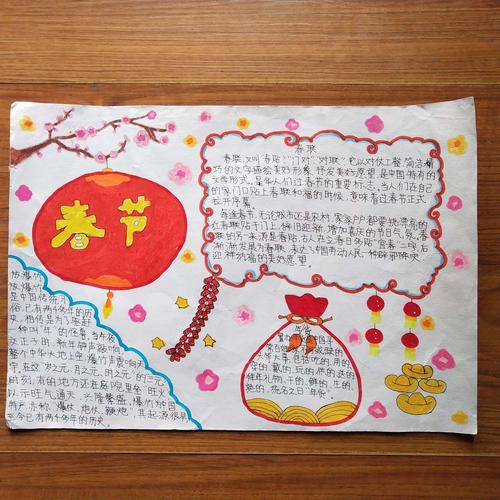 春节
春联
春联,又叫"春贴""门对""对联",它以对仗工整、简洁精
巧的文字描绘美好形象,抒发美好愿望,是中国特有的
文学形式,是华人们过春节的重要标志。当人们在自己
的家门口贴上春联和福的时候,意味着过春节正式
拉开序幕。
每逢春节,无论城市还是农村,家家户户都要挑漂亮的
红春联贴于门上,辞旧迎新,增加喜庆的节日气氛。春
联的另一来源是春贴,古人在立春日多贴"宜春"二字,
渐渐发展为春联,表达了中国劳动人民一种辟邪除灾
迎祥纳福的美好愿望。
放爆竹
放爆竹
是中国传统
俗,已有两千多年的历
史。相传是为了驱赶
一种叫"年"的怪兽。当午夜
交正子时,新年钟声敲响,
整个中华大地上空,爆竹声震响天
宇。在这"岁之元、月之元、时之元"的"三元"
的时刻,有的地方还在庭院里垒"旺火"
以示旺气通天,兴隆繁盛。爆竹,
特产,亦称"爆仗、炮仗、鞭炮",其起源很早,
至今已有两千多年的历史。
年货
的、穿
的、戴的、玩的、供的、送的
年礼物,干的、鲜的、生的、
熟的,统名之曰"年货"。